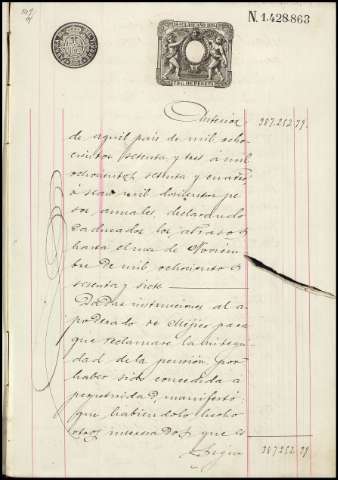 N.1.428.863
Anterior 387.252.79.
de aquel pais de mil ocho
cientos setenta y tres á mil
ochocientos setenta y cuatro
á seis mil doscientos pe
sos anuales declarando
caducados los atrasos
hasta el mes de Noviem
bre de mil ochocientos
setenta y siete
Dadas instrucciones al a
poderado de Mejico para
que reclamase la integri
dad de la pension, por
haber sido concedida a
perpetuidad, manifestó
que habiendolo hecho
otros interesados que
Sigue 387252 79